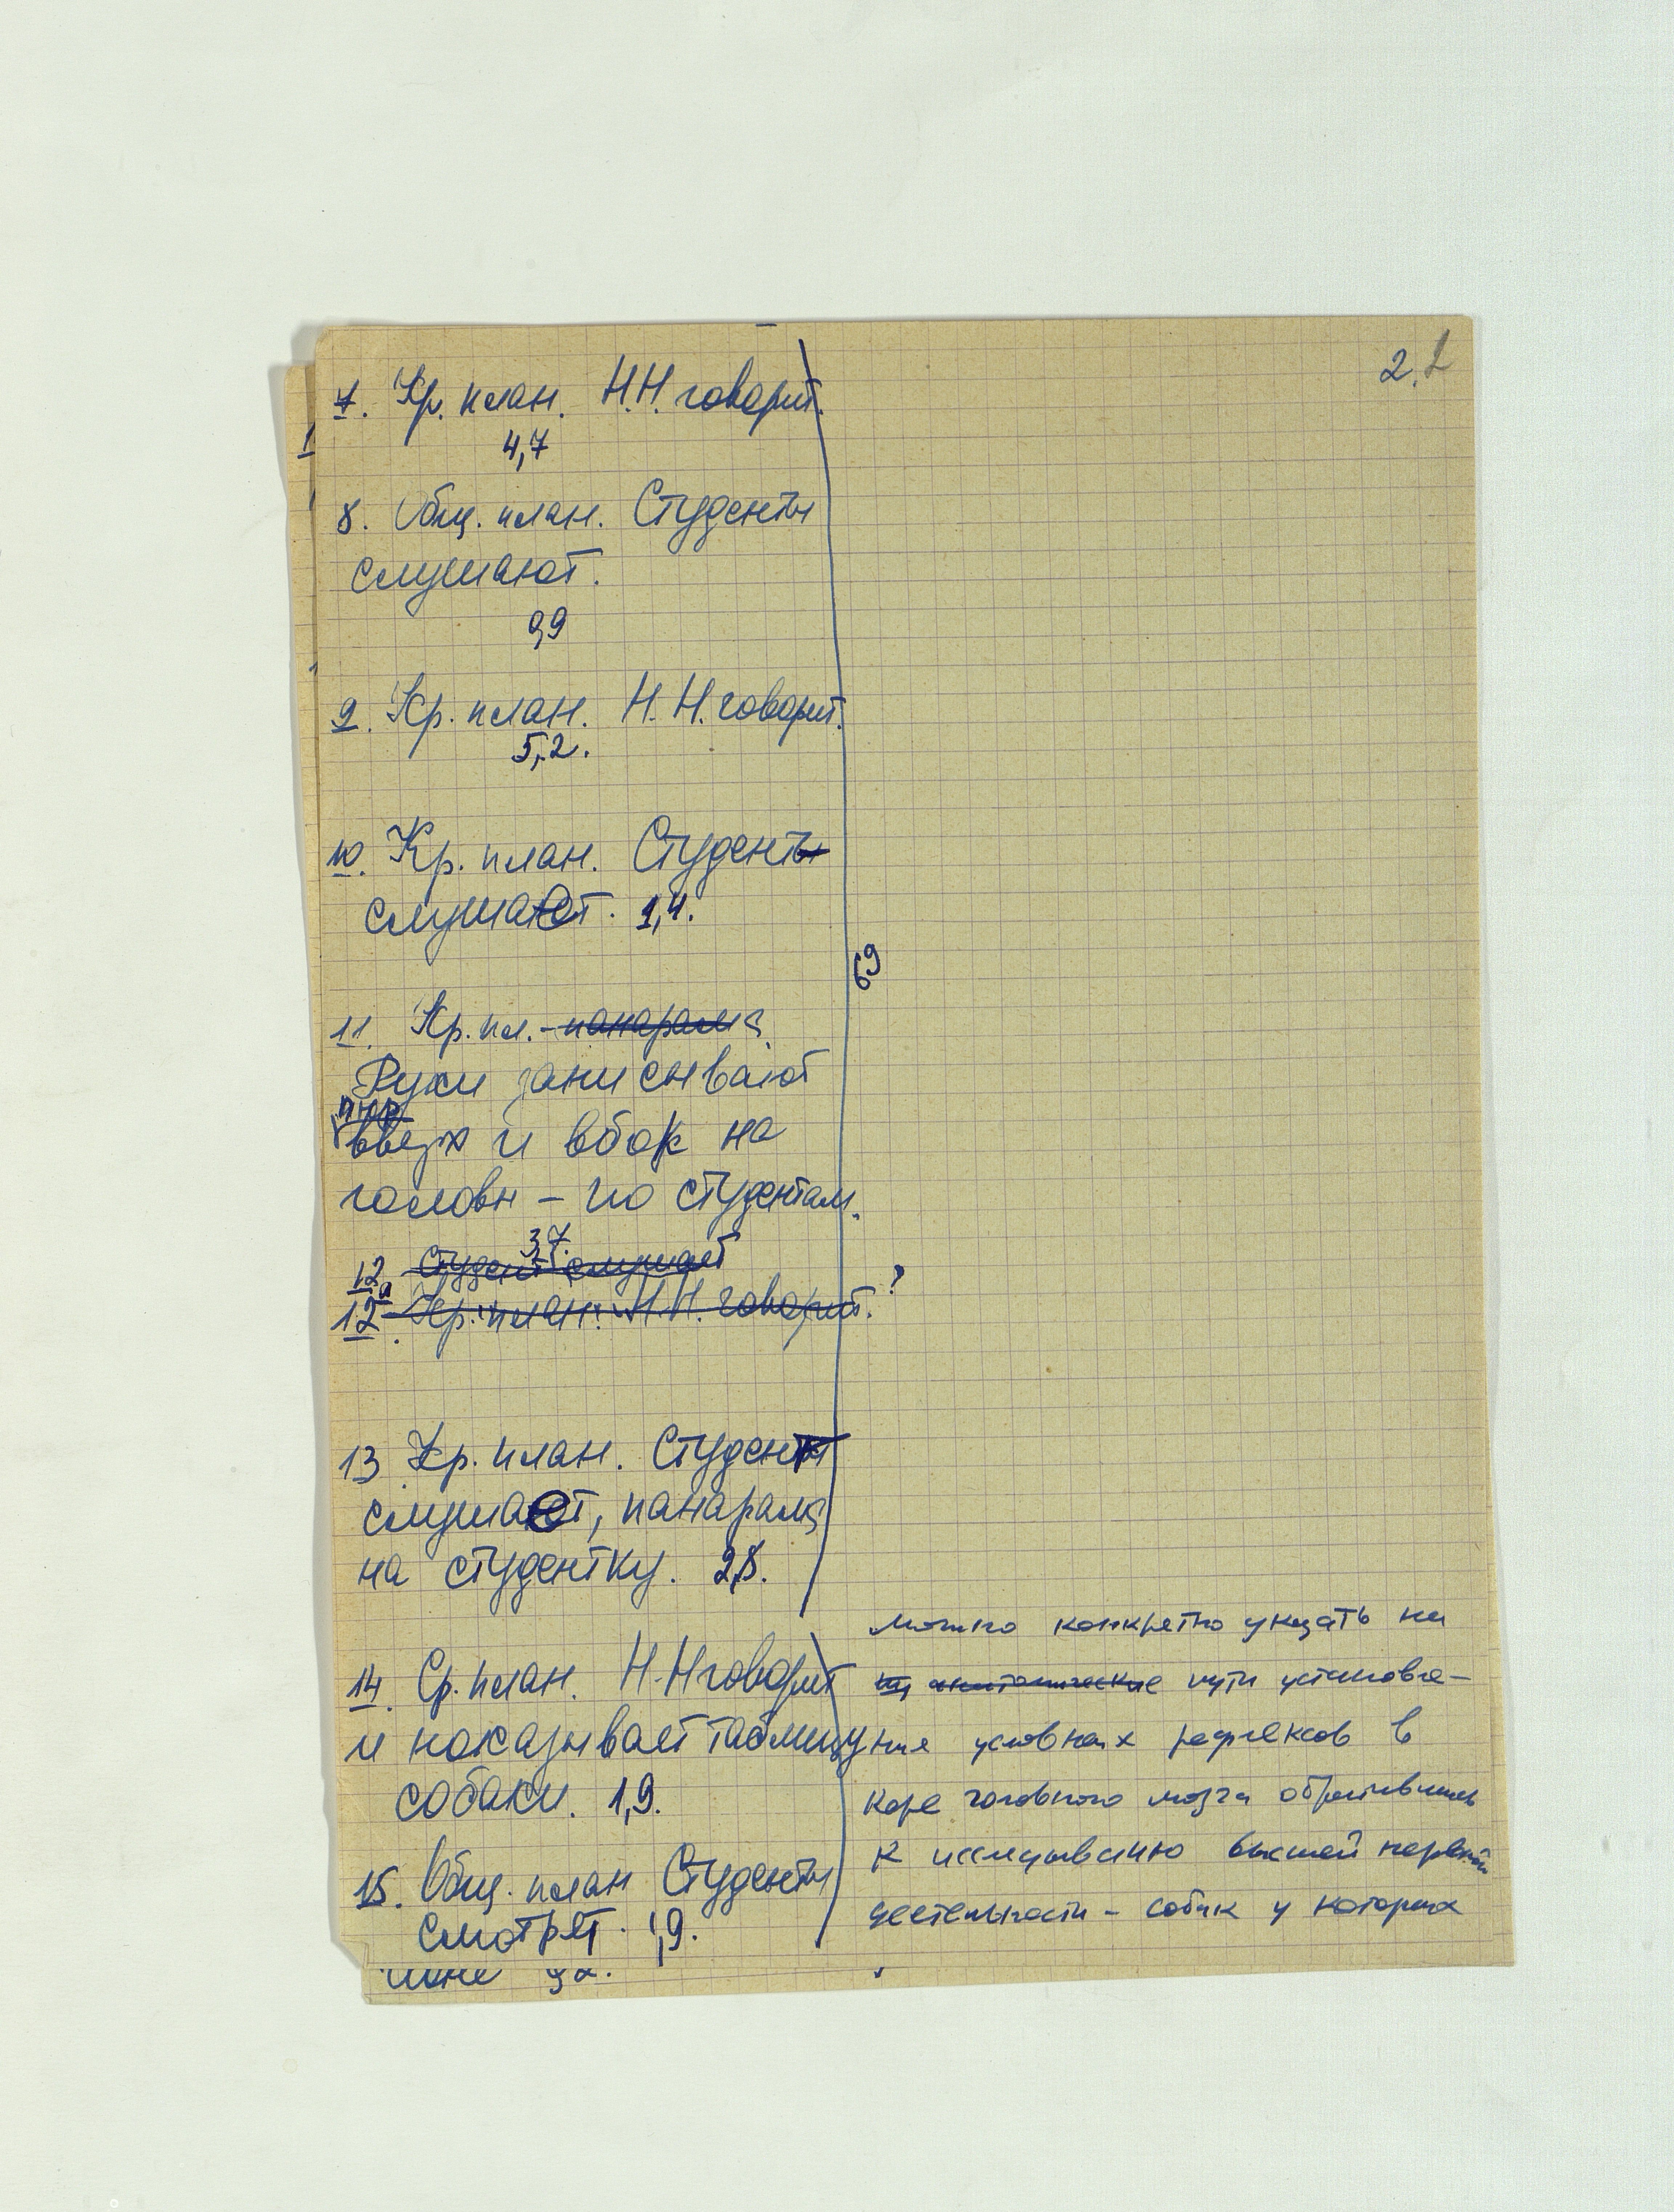 2.
7. Кр. план. Н.Н. говорит.
4,7
8. Общ. план. Студенты
слушают.
0,9
9. Кр. план. Н.Н. говорит.
5,2.
10. Кр. план. Студент
слушает. 1,4.
69
11. Кр. пл. - панарама
Руки записывают
вверх и вбок на
головы - по студентам.
3,7.
12 Студент слушает
12а Кр. план. Н.Н. говорит. ?
13 Кр. план. Студент
слушает, панарама
на студентку. 2,8.
14. Ср. план. Н.Н говорит
и показывает таблицу
собаки. 1,9.
15. Общ. план Студенты
смотрят. 1,9.
можно конкретно указать на
анатомические пути установле-
ния условных рефлексов в
коре головного мозга обратившись
к исследованию высшей нервной
деятельности - собак у которых